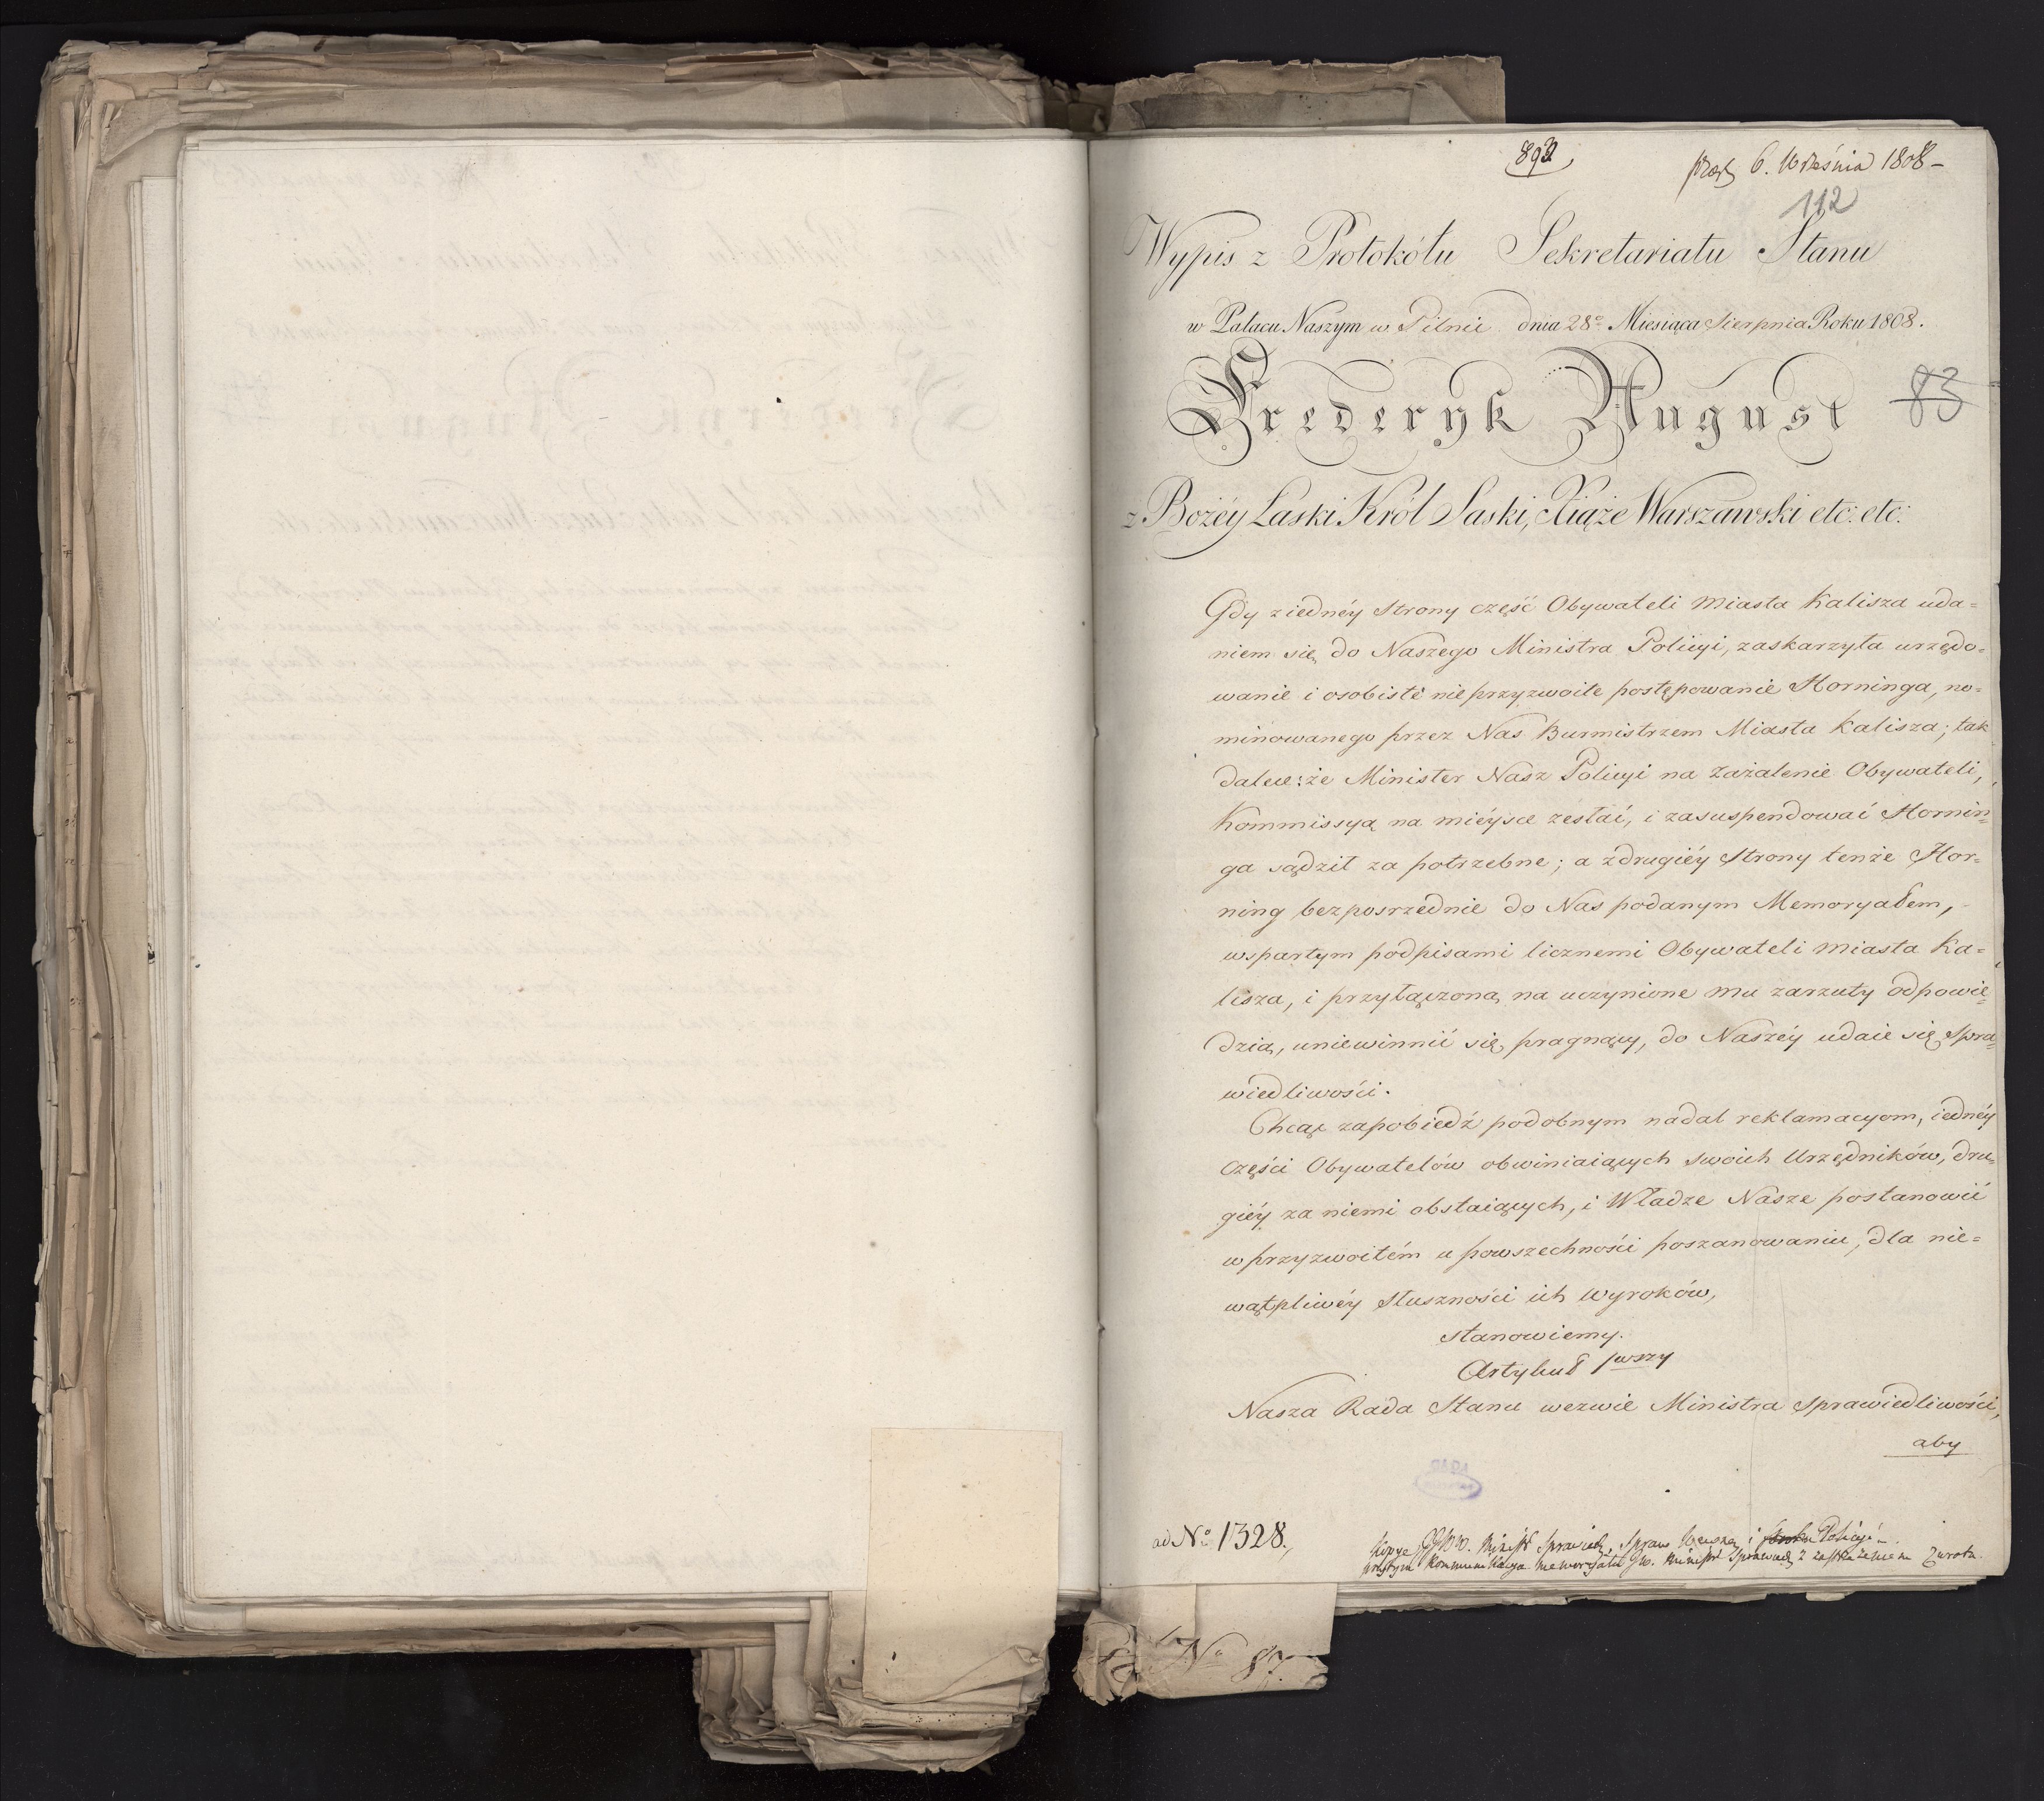 892
6. Września 1808 –
112
Wypis z Protokółu Sekretariatu Stanu
w Pałacu Naszym w Pilnie dnia 28º Miesiąca Sierpnia Roku 1808.
Frederyk August
83
z Bożéy Łaski Król Saski, Xiąże Warszawski etc: etc:
Gdy z iednéy Strony część Obywateli Miasta Kalisza uda=
niem się do Naszego Ministra Policyi, zaskarzyła urzędo=
wanie i osobiste nieprzyzwoite postępowanie Horninga, no=
minowanego przez Nas Burmistrzem Miasta Kalisza; tak
dalece: że Minister Nasz Policyi na zażalenie Obywateli,
Kommissyą na miéysce zesłać, i zasuspendować Hornin=
ga sądził za potrzebne; a z drugiéy Strony tenże Hor=
ning bezpośrzednie do Nas podanym Memoryałem,
wspartym podpisami licznemi Obywateli Miasta Ka=
lisza, i przyłączoną na uczynione mu zarzuty odpowie=
dzią, uniewinnić się pragnący, do Naszéy udaie się Spra=
wiedliwości.
Chcąc zapobiedź podobnym nadal reklamacyom, iednéy
części Obywatelów obwiniaiących swoich Urzędników, dru=
giéy za niemi obstaiących, i Władze Nasze postanowić
w przyzwoitém u powszechności poszanowaniu, dla nie=
wątpliwéy Słuszności ich wyroków,
stanowiemy.
Artykuł 1wszy
Nasza Rada Stanu wezwie Ministra Sprawiedliwości,
aby
ad Nº 1328.
Kopye JJWW. Minist Sprawiedl, Spraw Wewnę, i Policyi
przytym Kommunikacya memoryału JW. Minist Sprawiedl z zastrzeżeniem zwrotu.
Nº 87.